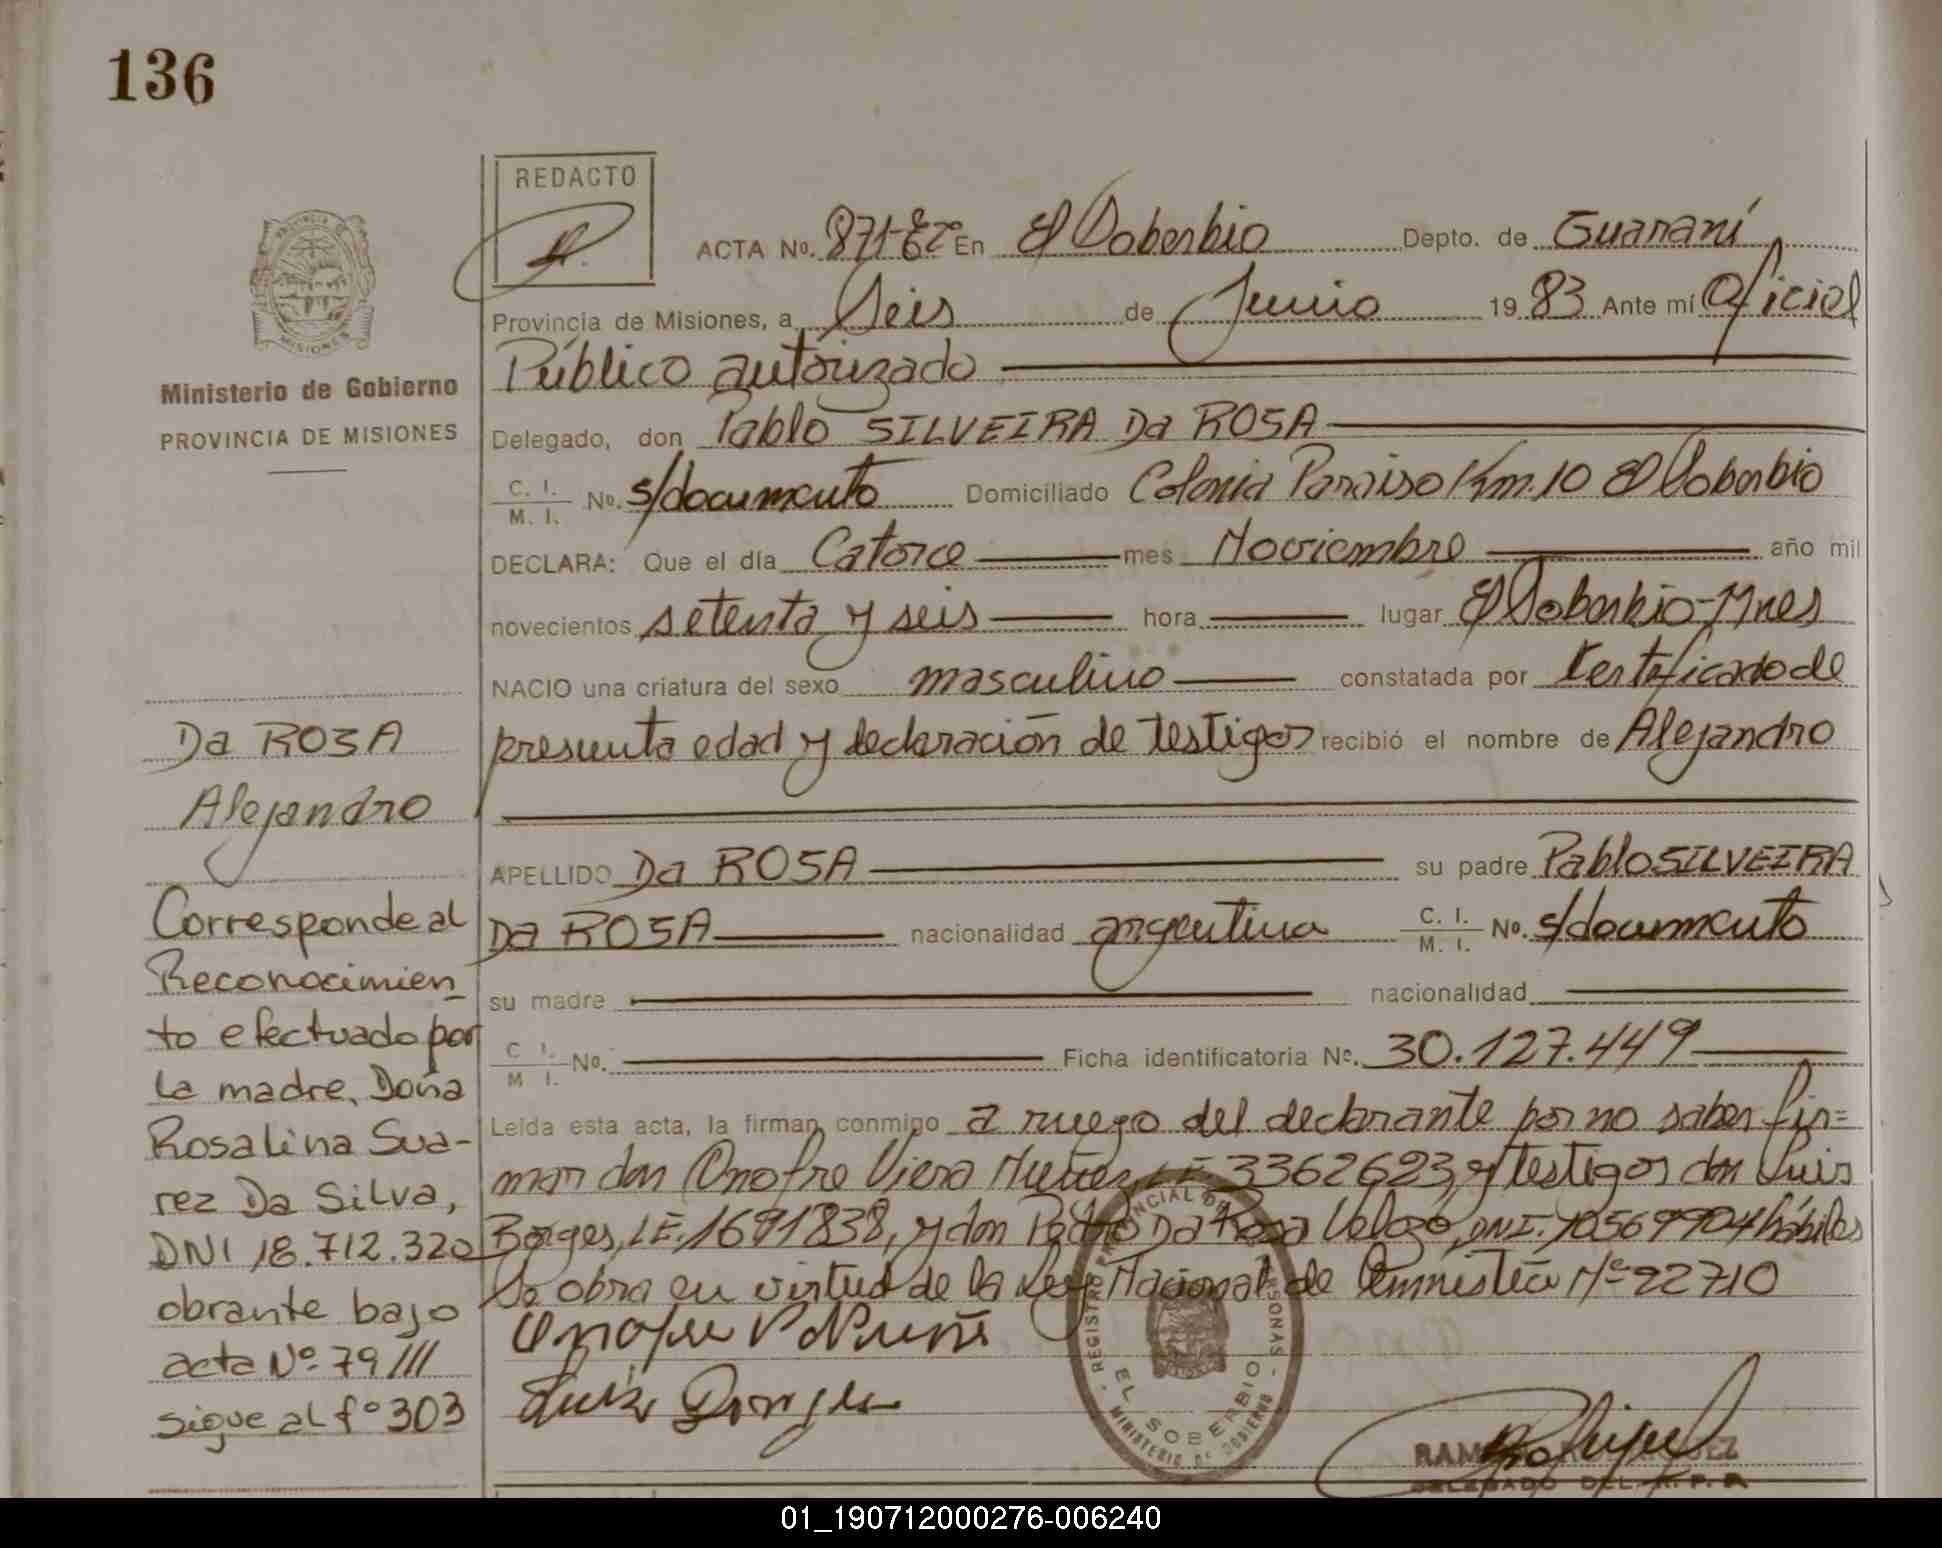 136
REDACTO
ACTA No. 871- En El Soberbio Depto. de Guaraní
Provincia de Misiones, a Seis de Junio 1983 Ante mí Oficial
Público autorizado
Ministerio de Gobierno
PROVINCIA DE MISIONES
Delegado, don Pablo SILVEIRA Da ROSA
C. I. / M. I. No. s/documento Domiciliado Colonia Paraiso Km.10 El Soberbio
DECLARA: Que el día Catorce mes Noviembre año mil
novecientos setenta y seis hora lugar El Soberbio-Mnes
NACIO una criatura del sexo masculino constatada por Certificado de
presunta edad y declaración de testigos recibió el nombre de Alejandro
APELLIDO Da ROSA su padre Pablo SILVEIRA
Da ROSA nacionalidad argentina C. I. / M. I. No. s/documento
su madre nacionalidad
C I. / M I. No. Ficha identificatoria No. 30.127.449
Leída esta acta, la firman conmigo a ruego del declarante por no saber fir=
mar don Onofre Viera Nuñez, LE 3362623, y testigos don Luis
Borges, LE. 1691838, y don Pedro Da Rosa Velozo, DNI. 10569904 hábiles
Se obra en virtud de la Ley Nacional de Amnistía Nº 22710
Da ROSA
Alejandro
Corresponde al
Reconocimien_
to efectuado por
la madre, Doña
Rosalina Sua-
rez Da Silva,
DNI 18.712.320
obrante bajo
acta Nº 79/III
sigue al fº 303
REGISTRO PROVINCIAL DE LAS PERSONAS
EL SOBERBIO
MINISTERIO DE GOBIERNO
DELEGADO DEL R. P. P.
01_190712000276-006240